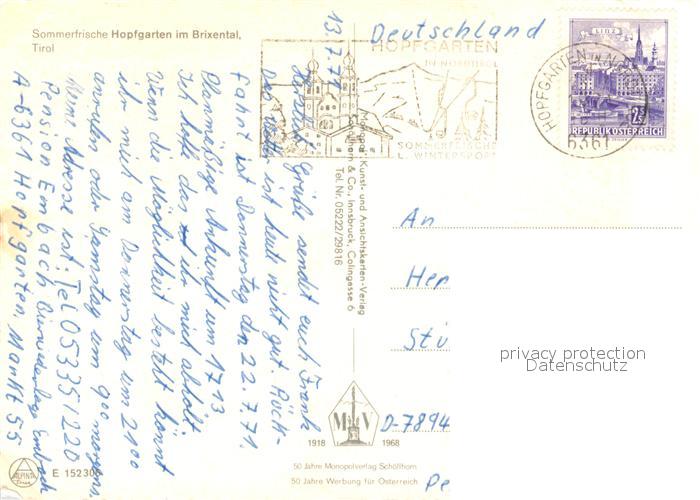 Sommerfrische Hopfgarten im Brixental,
Tirol
13.7.71
Herzliche Grüße sendet euch Frank
Das Wetter ist heut nicht gut. Rück-
fahrt ist Donnerstag den 22.7.71.
Planmäßige Ankunft um 1713
Ich hoffe das ihr mich abholt.
Wenn die Möglichkeit besteht könnt
ihr mich am Donnerstag um 2100
anrufen oder Samstag um 900 morgens
Meine Adresse ist: Tel 05335/220
Pension Embach
A-6361 Hopfgarten, Markt 55
E 152306
ALPINA
Druck
Monopol Kunst- und Ansichtskarten-Verlag
Schöllhorn & Co., Innsbruck, Colingasse 6
Tel. Nr. 05222/29816
Deutschland
HOPFGARTEN
IN NORDTIROL
SOMMERFRISCHE
U. WINTERSPORT
HOPFGARTEN IN NO
6361
LINZ
2S
REPUBLIK ÖSTERREICH
An
Her
Stü
D-7894
Pe
privacy protection
Datenschutz
M V
1918 1968
50 Jahre Monopolverlag Schöllhorn
50 Jahre Werbung für Österreich